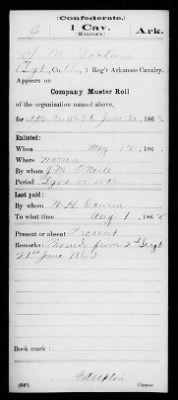 (Confederate.)
G 1 Cav. Ark.
(Monroe's)
Goodwin
Sgt, Co. , 1 Reg't Arkansas Cavalry.
Appears on
Company Muster Roll
of the organization named above,
for June 30, 186
Enlisted:
When May 12, 186
Where Warren
By whom J.M. O'Neill
Period 3 yrs or war
Last paid:
By whom W.H.
To what time Aug 1, 186
Present or absent Present
Remarks: from 2d Sergt
21st June 1863
Book mark:
Copyist.